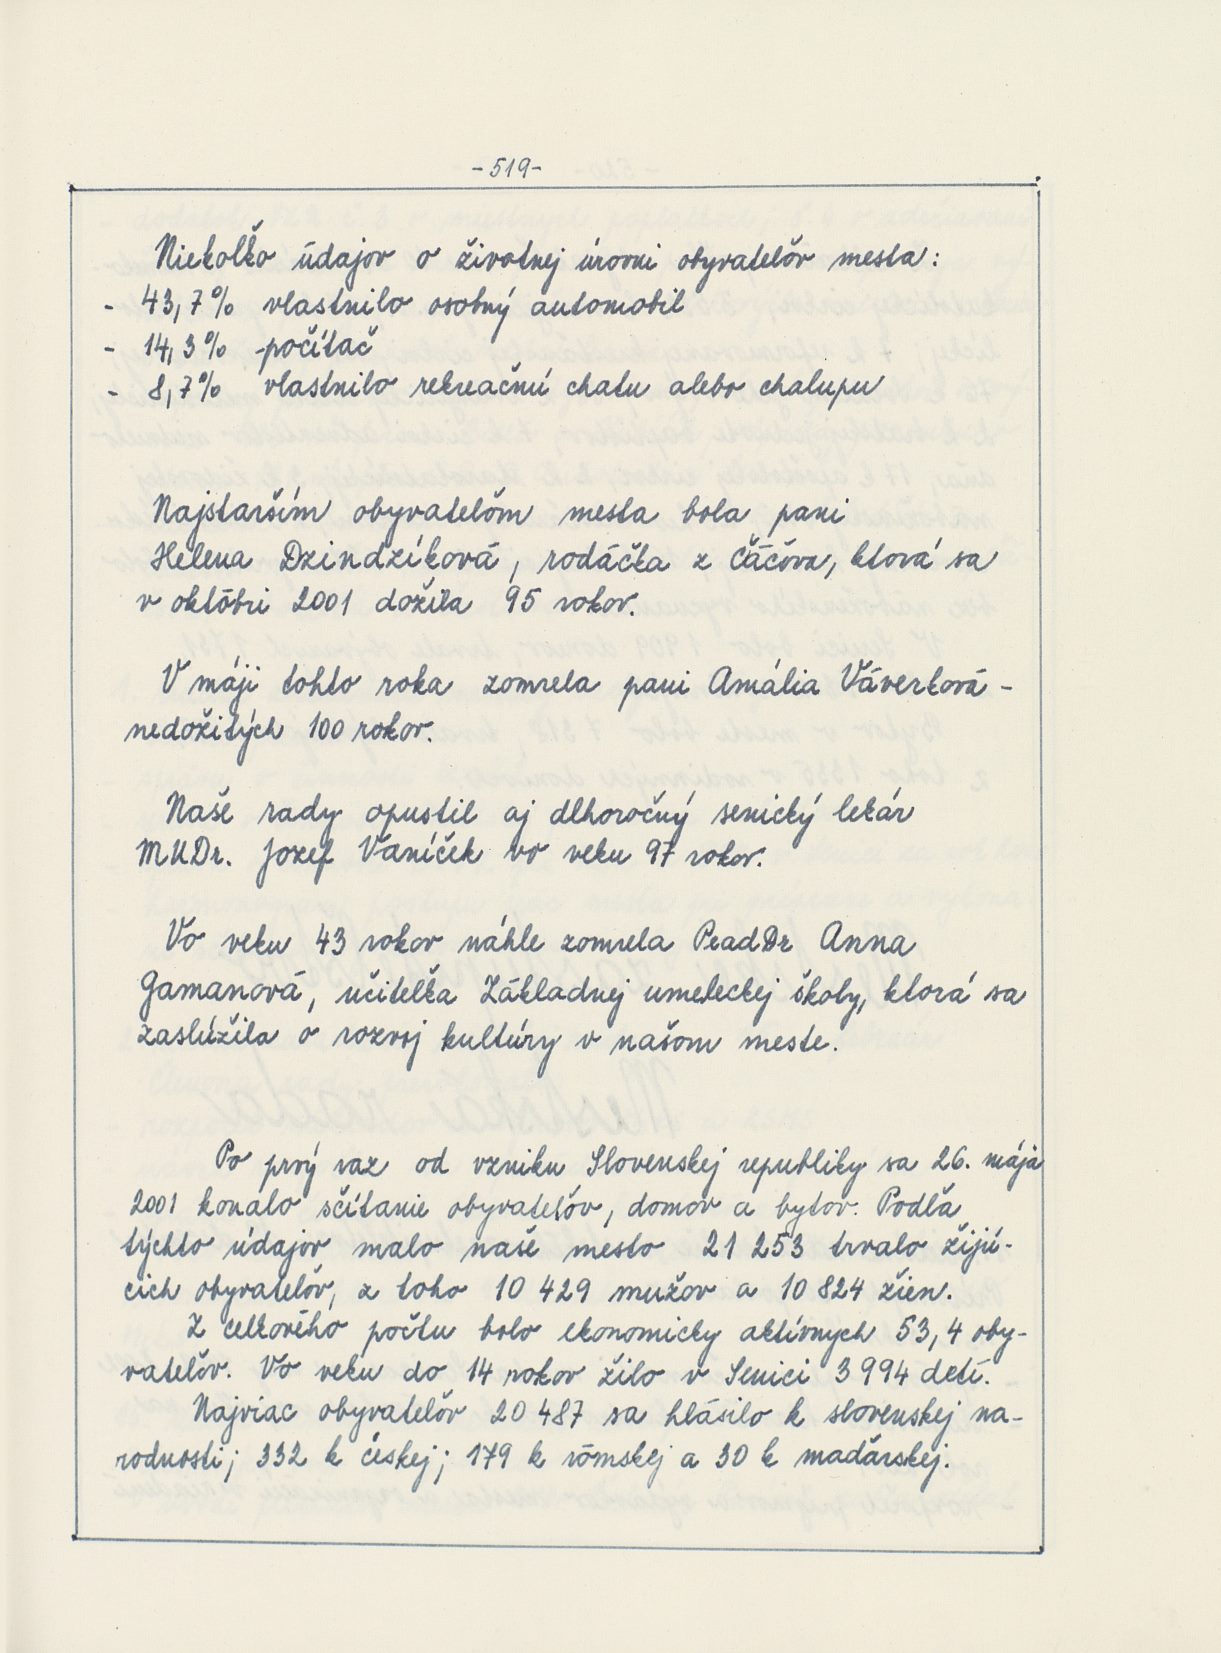 -519-
Niekoľko údajov o životnej úrovni obyvateľov mesta:
- 43,7% vlastnilo osobný automobil
- 14,3% počítač
- 8,7% vlastnilo rekreačnú chatu alebo chalupu
Najstarším obyvateľom mesta bola pani
Helena Dzindzíková, rodáčka z Čáčova, ktorá sa
v októbri 2001 dožila 95 rokov.
V máji tohto roka zomrela pani Amália Váverková -
nedožitých 100 rokov.
Naše rady opustil aj dlhoročný senický lekár
MUDr. Jozef Vaníček vo veku 97 rokov.
Vo veku 43 rokov náhle zomrela PeadDr Anna
Gamanová, učiteľka Základnej umeleckej školy, ktorá sa
zaslúžila o rozvoj kultúry v našom meste.
Po prvý raz od vzniku Slovenskej republiky sa 26. mája
2001 konalo sčítanie obyvateľov, domov a bytov. Podľa
týchto údajov malo naše mesto 21 253 trvalo žijú-
cich obyvateľov, z toho 10 429 mužov a 10 824 žien.
Z celkového počtu bolo ekonomicky aktívnych 53,4 oby-
vateľov. Vo veku do 14 rokov žilo v Senici 3 994 detí.
Najviac obyvateľov 20 487 sa hlásilo k slovenskej na-
rodnosti; 332 k českej; 179 k rómskej a 30 k maďarskej.